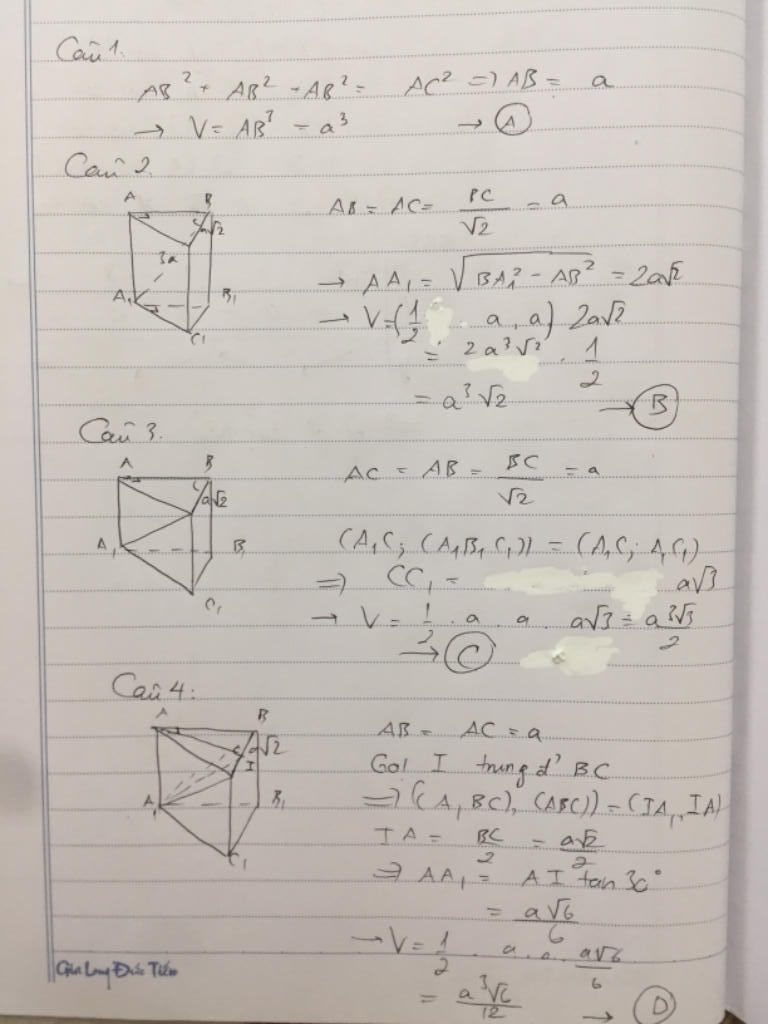 Câu 1.
AB² + AB² + AB² = AC² => AB = a
→ V = AB³ = a³ → A
Câu 2.
A B
a√2
3a
A₁ B₁
C₁
AB = AC = BC/√2 = a
→ AA₁ = √(BA₁² - AB²) = 2a√2
→ V = (1/2 . a . a) 2a√2
= 2a³√2 . 1/2
= a³√2 → B
Câu 3.
A B
C a√2
A₁ B₁
C₁
AC = AB = BC/√2 = a
(A₁C; (A₁B₁C₁)) = (A₁C; A₁C₁)
=> CC₁ = a√3
→ V = 1/2 . a . a . a√3 = a³√3/2
→ C
Câu 4:
A B
C a√2
I
A₁ B₁
C₁
AB = AC = a
Gọi I trung đ' BC
=> ((A₁BC), (ABC)) = (IA₁, IA)
IA = BC/2 = a√2/2
=> AA₁ = AI tan 30°
= a√6/6
→ V = 1/2 . a . a . a√6/6
= a³√6/12 → D
Gia Long Đức Tiến